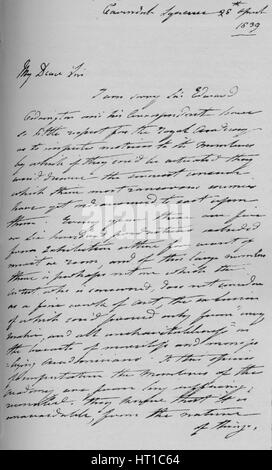 Cavendish Square 25th April
1839
My Dear Sir
I am sorry Sir Edward
Codrington and his Correspondent have
so little respect for the Royal Academy
as to impute motives to its Members
by which if they could be actuated they
would deserve the severest censure
which their most rancorous enemies
have yet endeavoured to cast upon
them. Every year there are five
or six hundred productions excluded
from Exhibition either for want of
merit or room, and of this large number
there is perhaps not one which the
artist who is concerned, does not consider
as a fine work of Art, the exclusion
of which could proceed only from
and all uncharitableness in
the hearts of
Academicians. To this species
of imputation the Members of the
Academy are from long suffering,
they are aware that it is
unavoidable, from the nature
of things,
alamy
a
alamy
Image ID: HT1C64
www.alamy.com